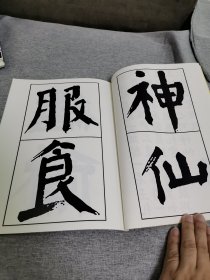 神仙
服食